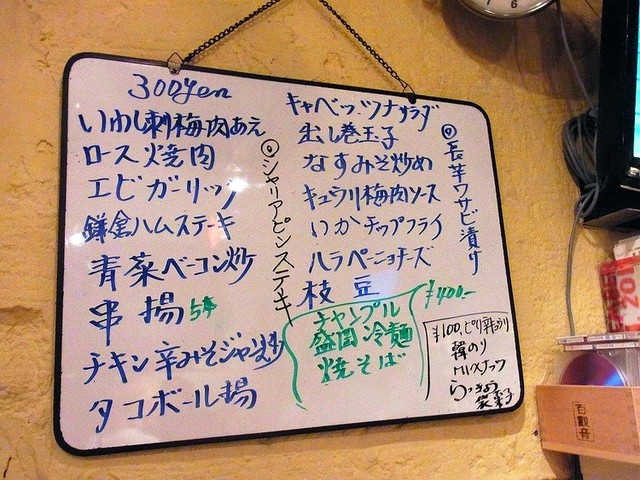 300yen
いわし刺梅肉あえ
ロース焼肉
エビガーリック
鎌倉ハムステーキ
青菜ベーコン炒
串揚5本
チキン辛みそジャン炒
タコボール揚
◎シャリアピンステーキ
キャベッツナサラダ
出し巻玉子
なすみそ炒め
キュウリ梅肉ソース
いかチップフライ
ハラペーニョチーズ
枝豆
◎長芋ワサビ漬け
¥400-
チャンプル
盛岡冷麺
焼そば
¥100
韓のり
MIXナッツ
らっきょう
6